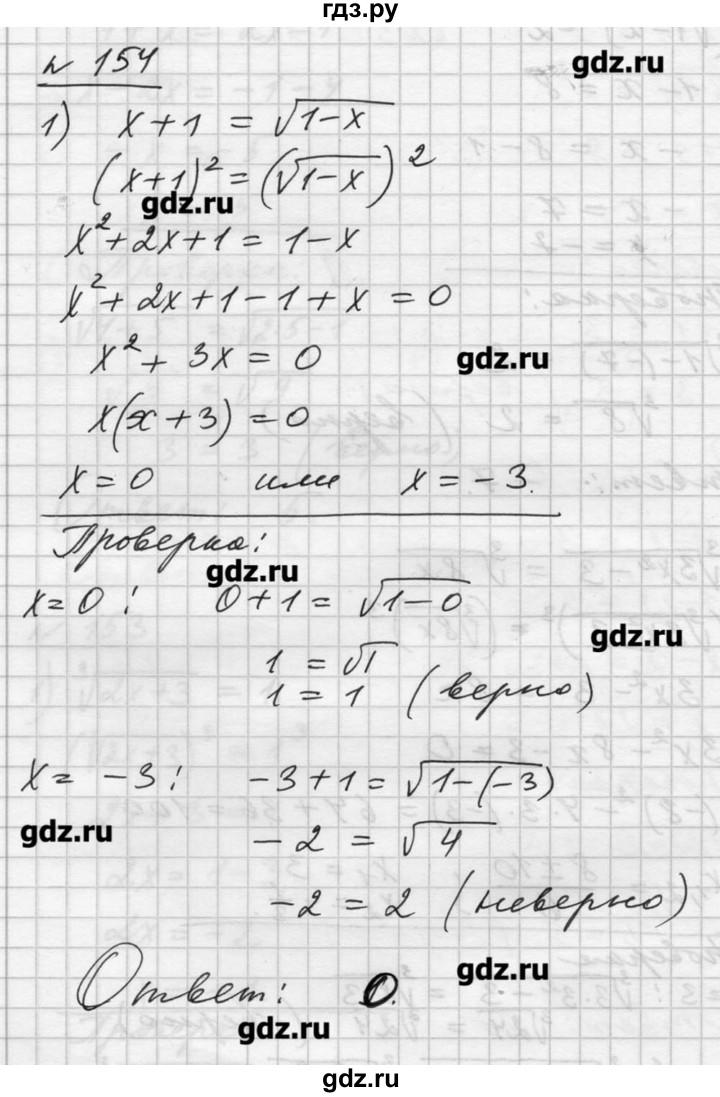 гдз.ру
№ 154
gdz.ru
1) x+1 = √(1-x)
(x+1)² = (√(1-x))²
gdz.ru
x²+2x+1 = 1-x
x²+2x+1-1+x = 0
x²+3x = 0
gdz.ru
x(x+3) = 0
x=0 или x=-3.
Проверка:
gdz.ru
x=0: 0+1 = √(1-0)
gdz.ru
1 = √1
1 = 1 (верно)
x = -3: -3+1 = √(1-(-3))
gdz.ru
-2 = √4
-2 = 2 (неверно)
gdz.ru
Ответ: 0.
gdz.ru
gdz.ru